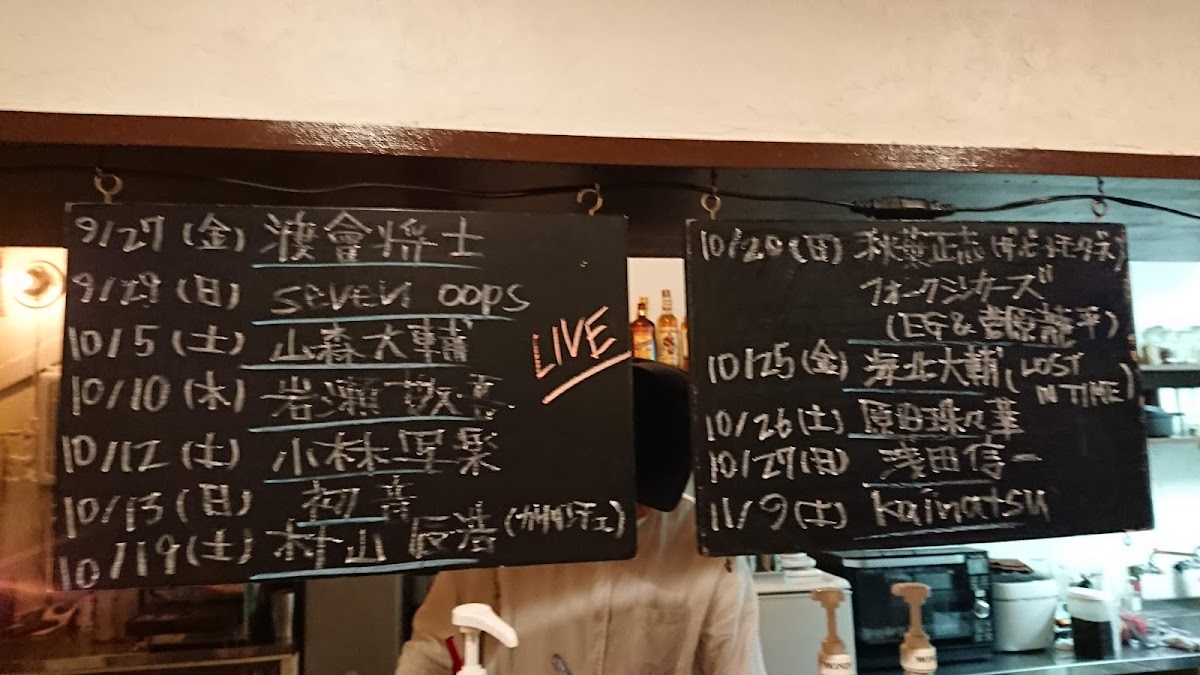 9/27(金) 渡會将士
9/29(日) seven oops
10/5(土) 山森大輔
10/10(木) 岩瀬敬吾
10/12(土) 小林写楽
10/13(日) 初音
10/19(土) 村山辰浩
LIVE
10/20(日) 秋葉正志
フォークシンガーズ
(EG&菅原龍平)
10/25(金) 海北大輔(LOST
IN TIME)
10/26(土) 原田珠々華
10/27(日) 浅田信一
11/9(土) kainatsu